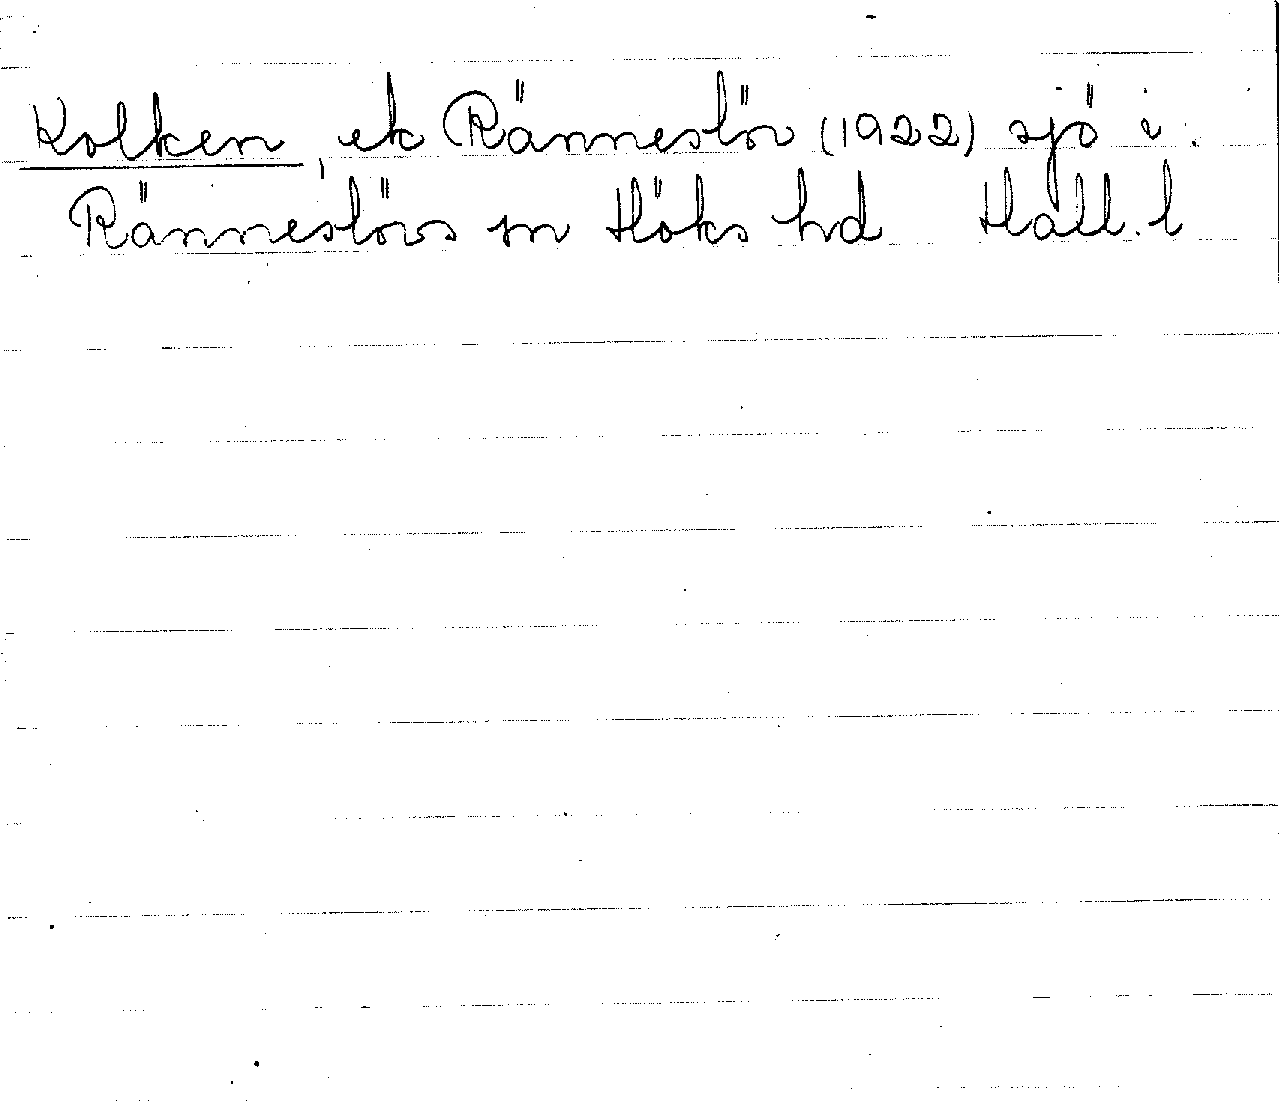 Kolken, ek Ränneslöv (1922) sjö i
Ränneslövs sn Höks hd Hall. l